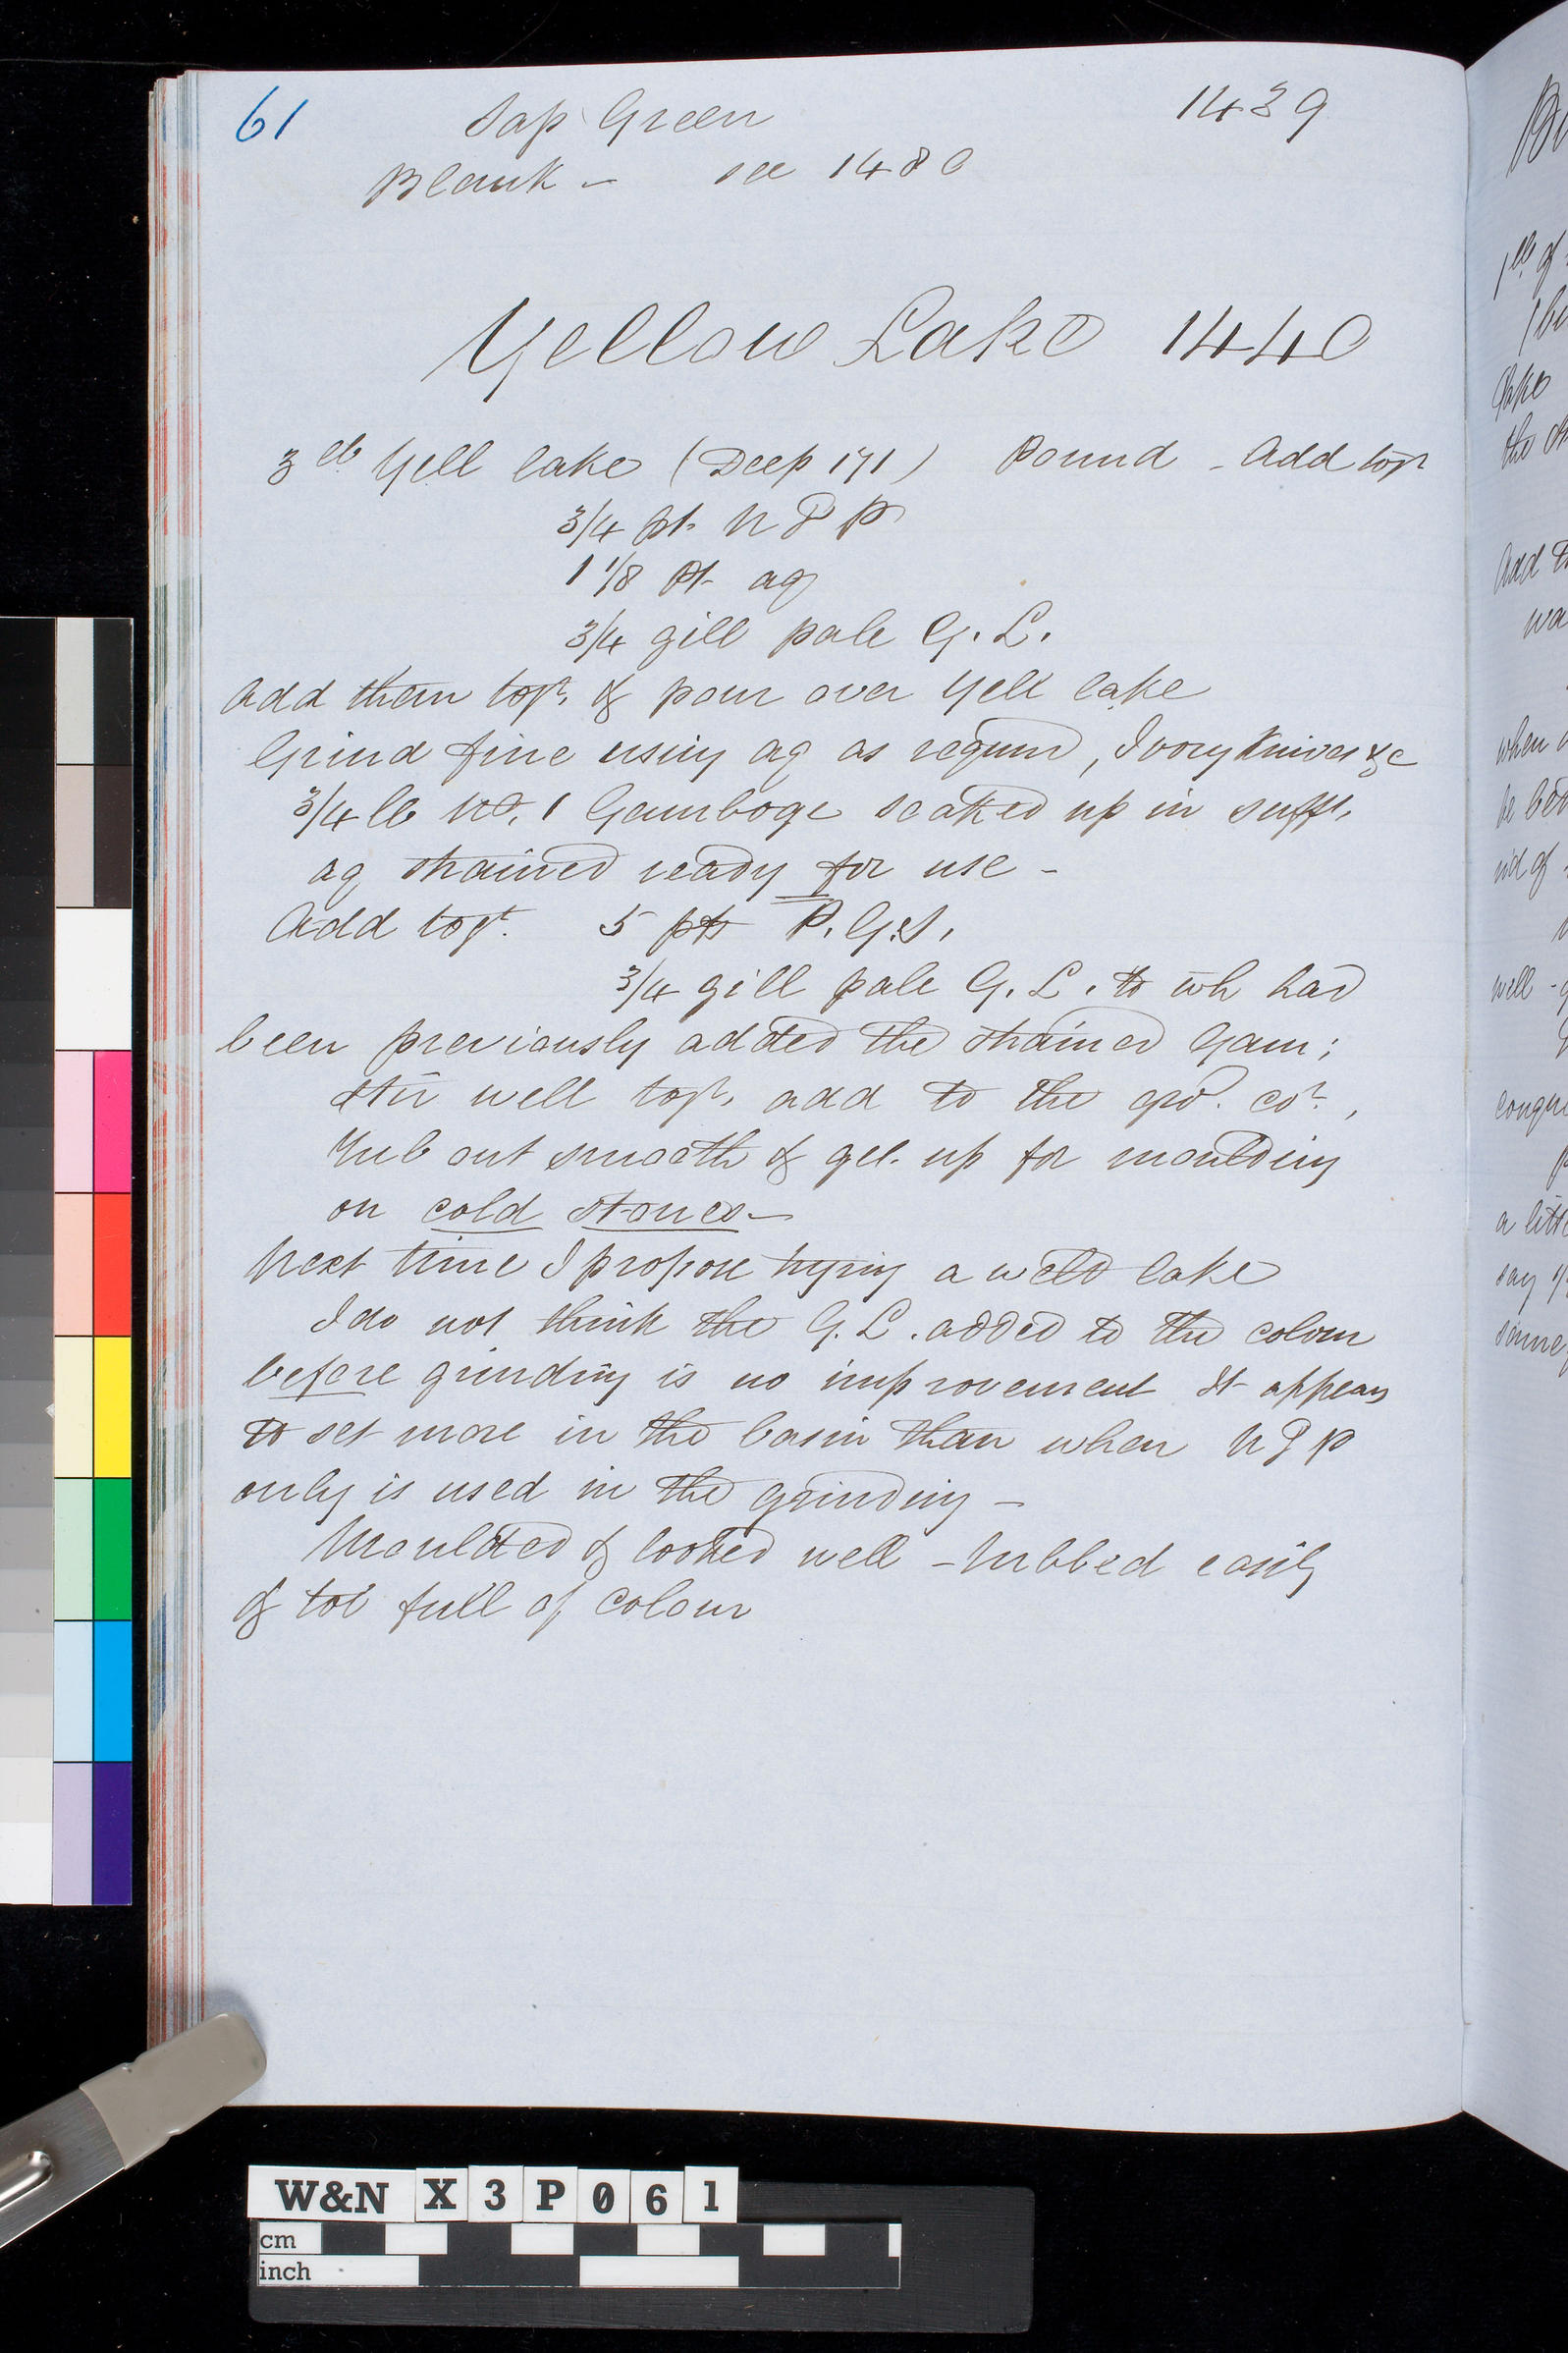 61 Sap Green 1439
Blank - see 1480
Yellow Lake 1440
3 lb Yell lake (Deep 171) Pound - Add togr
3/4 pt. N P P
1 1/8 Pt aq
3/4 gill pale G. L.
Add them togr. & pour over Yell lake
Grind fine using aq as requird, Ivory Knives &c
3/4 lb No. 1 Gamboge soaked up in sufft.
aq strained ready for use -
Add togr. 5 pts P. G. S.
3/4 gill pale G. L. to wh had
been previously added the strained Gam;
Stir well togr. add to the grd. cor.,
Rub out smooth & get up for moulding
on cold stones -
Next time I propose trying a weld lake
I do not think the G. L. added to the colour
before grinding is no improvement It appears
to set more in the basin than when N P P
only is used in the grinding -
Moulded & looked well - Rubbed easily
& tol full of colour
W&N X3P061
cm
inch
Add
1 lb of
lake
the
when
be
rid of
well -
a
say
same